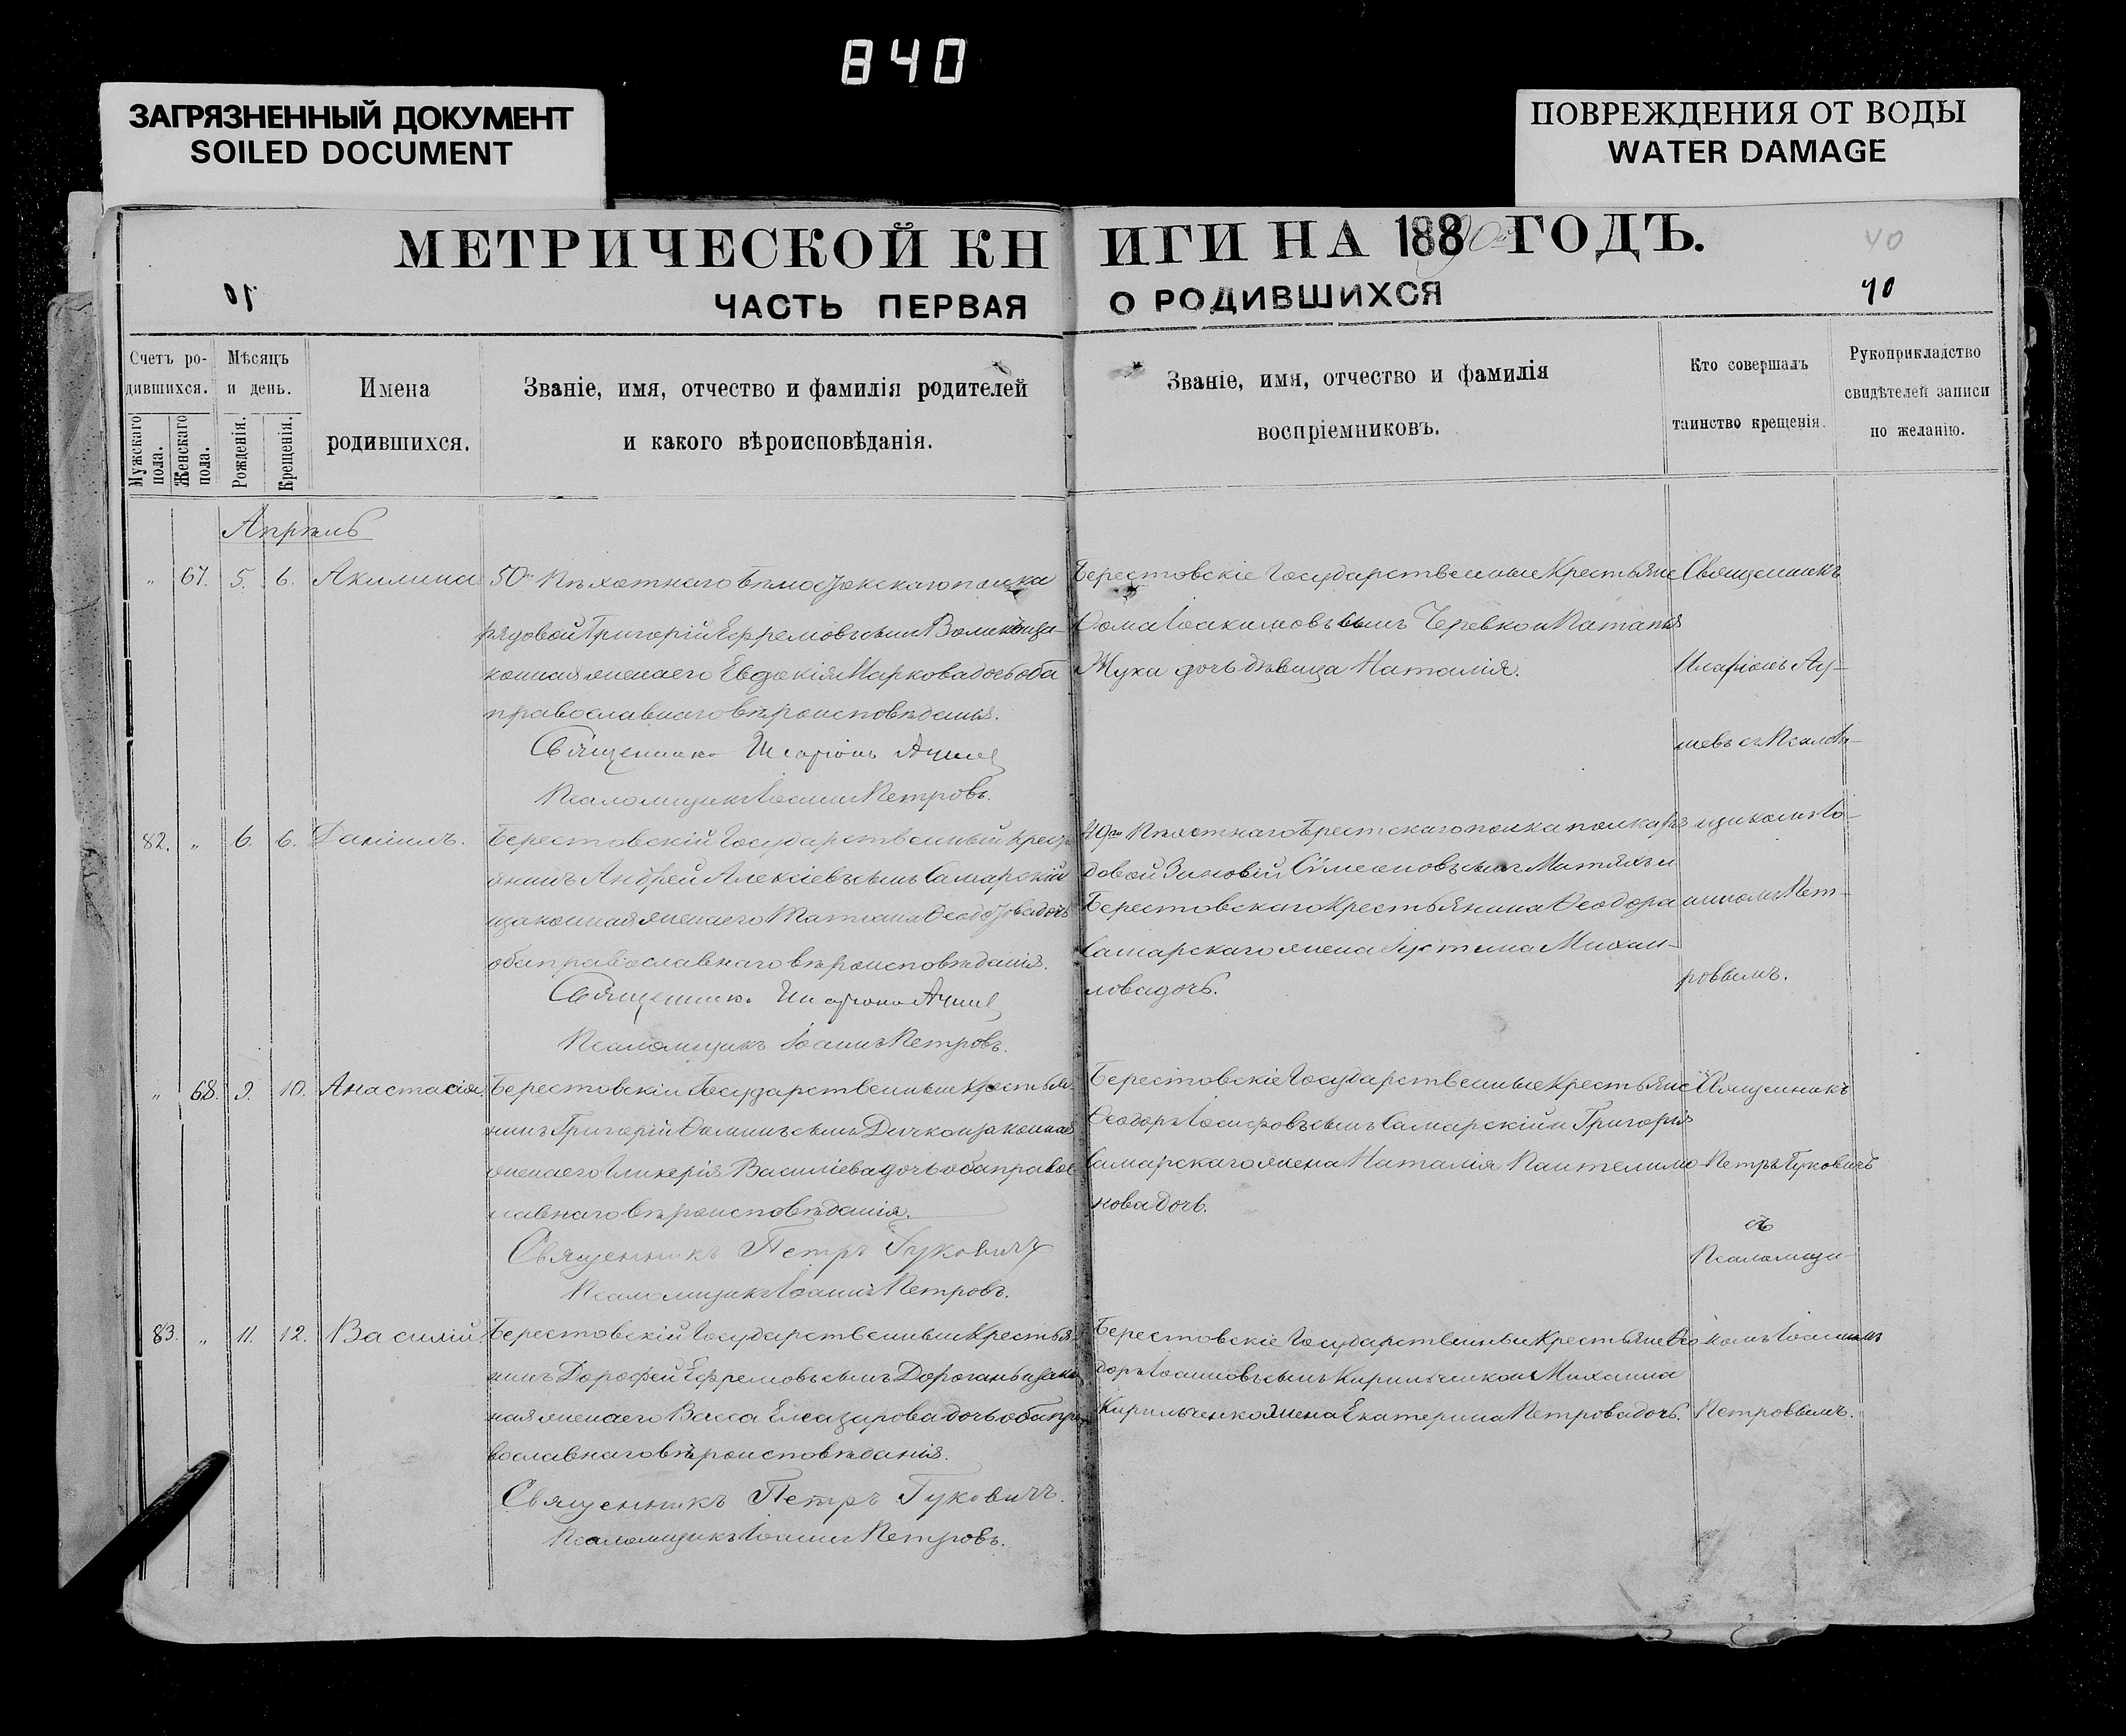 840
ЗАГРЯЗНЕННЫЙ ДОКУМЕНТ
SOILED DOCUMENT
ПОВРЕЖДЕНИЯ ОТ ВОДЫ
WATER DAMAGE
МЕТРИЧЕСКОЙ КН
ИГИ НА 188 90й ГОДЪ.
40
ЧАСТЬ ПЕРВАЯ
О РОДИВШИХСЯ
40
Счетъ ро-
дившихся.
Мужскаго пола.
Женскаго пола.
Мѣсяцъ
и день.
Рожденія.
Крещенія.
Имена
родившихся.
Званіе, имя, отчество и фамилія родителей
и какого вѣроисповѣданія.
Званіе, имя, отчество и фамилія
воспріемниковъ.
Кто совершалъ
таинство крещенія.
Рукоприкладство
свидѣтелей записи
по желанію.
Апрѣль
„ 67. 5. 6. Акилина
50го Пѣхотнаго Бѣлостокскаго полка
рядовой Григорій Ефремовъ сынъ и за-
конная жена его Евдокія Маркова дочь оба
православнаго вѣроисповѣданія.
Священникъ Иларіонъ
Псаломщикъ Іоаннъ Петровъ.
Берестовскіе Государственные Крестьяне
Ѳома Іоакимовъ сынъ Черевко и
Жука дочь дѣвица Наталія.
Священникъ
Иларіонъ
съ Псалом-
щикомъ Іо-
анномъ Пет-
ровымъ.
82. „ 6. 6. Даніилъ.
Берестовскій Государственный Кресть
янинъ Андрей Алексіевъ сынъ Самарскій
и законная жена его Татіана Ѳеодорова дочь
оба православнаго вѣроисповѣданія.
Священникъ Иларіонъ
Псаломщикъ Іоаннъ Петровъ.
49го Пѣхотнаго Брестскаго полка полка ря
довой Зиновій Сѵмеоновъ сынъ Матяхъ и
Берестовскаго Крестьянина Ѳеодора
Самарскаго жена Іустина Михаи-
лова дочь.
„ 68. 9. 10. Анастасія.
Берестовскій Государственный Крестья-
нинъ Григорій Ѳоминъ сынъ Дичко и законная
жена его Гликерія Василіева дочь оба правос
лавнаго вѣроисповѣданія.
Священникъ Петръ Гуковичъ
Псаломщикъ Іоаннъ Петровъ.
Берестовскіе Государственные Крестьяне
Ѳеодоръ Іосифовъ сынъ Самарскій и Григорія
Самарскаго жена Наталія Пантелимо
нова дочь.
Священникъ
Петръ Гуковичъ
съ
Псаломщи-
комъ Іоанномъ
Петровымъ.
83. „ 11. 12. Василій.
Берестовскій Государственный Крестья
нинъ Дорофей Ефремовъ сынъ Дорогань и закон
ная жена его Васса Елеазарова дочь оба пра
вославнаго вѣроисповѣданія.
Священникъ Петръ Гуковичъ.
Псаломщикъ Іоаннъ Петровъ.
Берестовскіе Государственные Крестьяне Ѳео
доръ Іоанновъ сынъ Кирильченко и Михаила
Кирильченко жена Екатерина Петрова дочь.